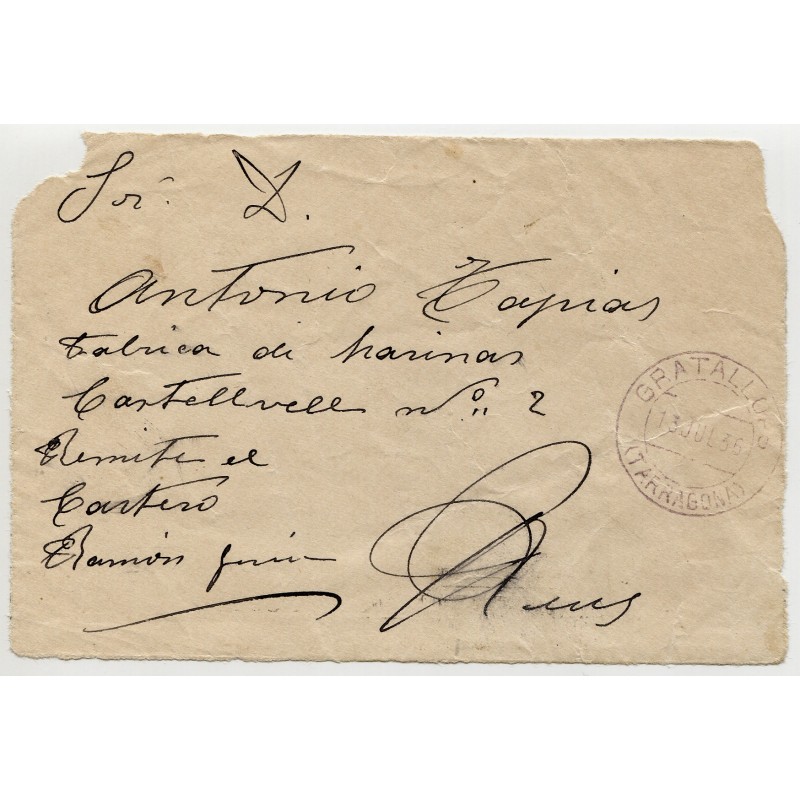 Sr. D.
Antonio Tapias
Fabrica de harinas
Castellvell nº 2
Remite el
Cartero
Ramón
Reus
GRATALLOPS
13 JUL 36
(TARRAGONA)